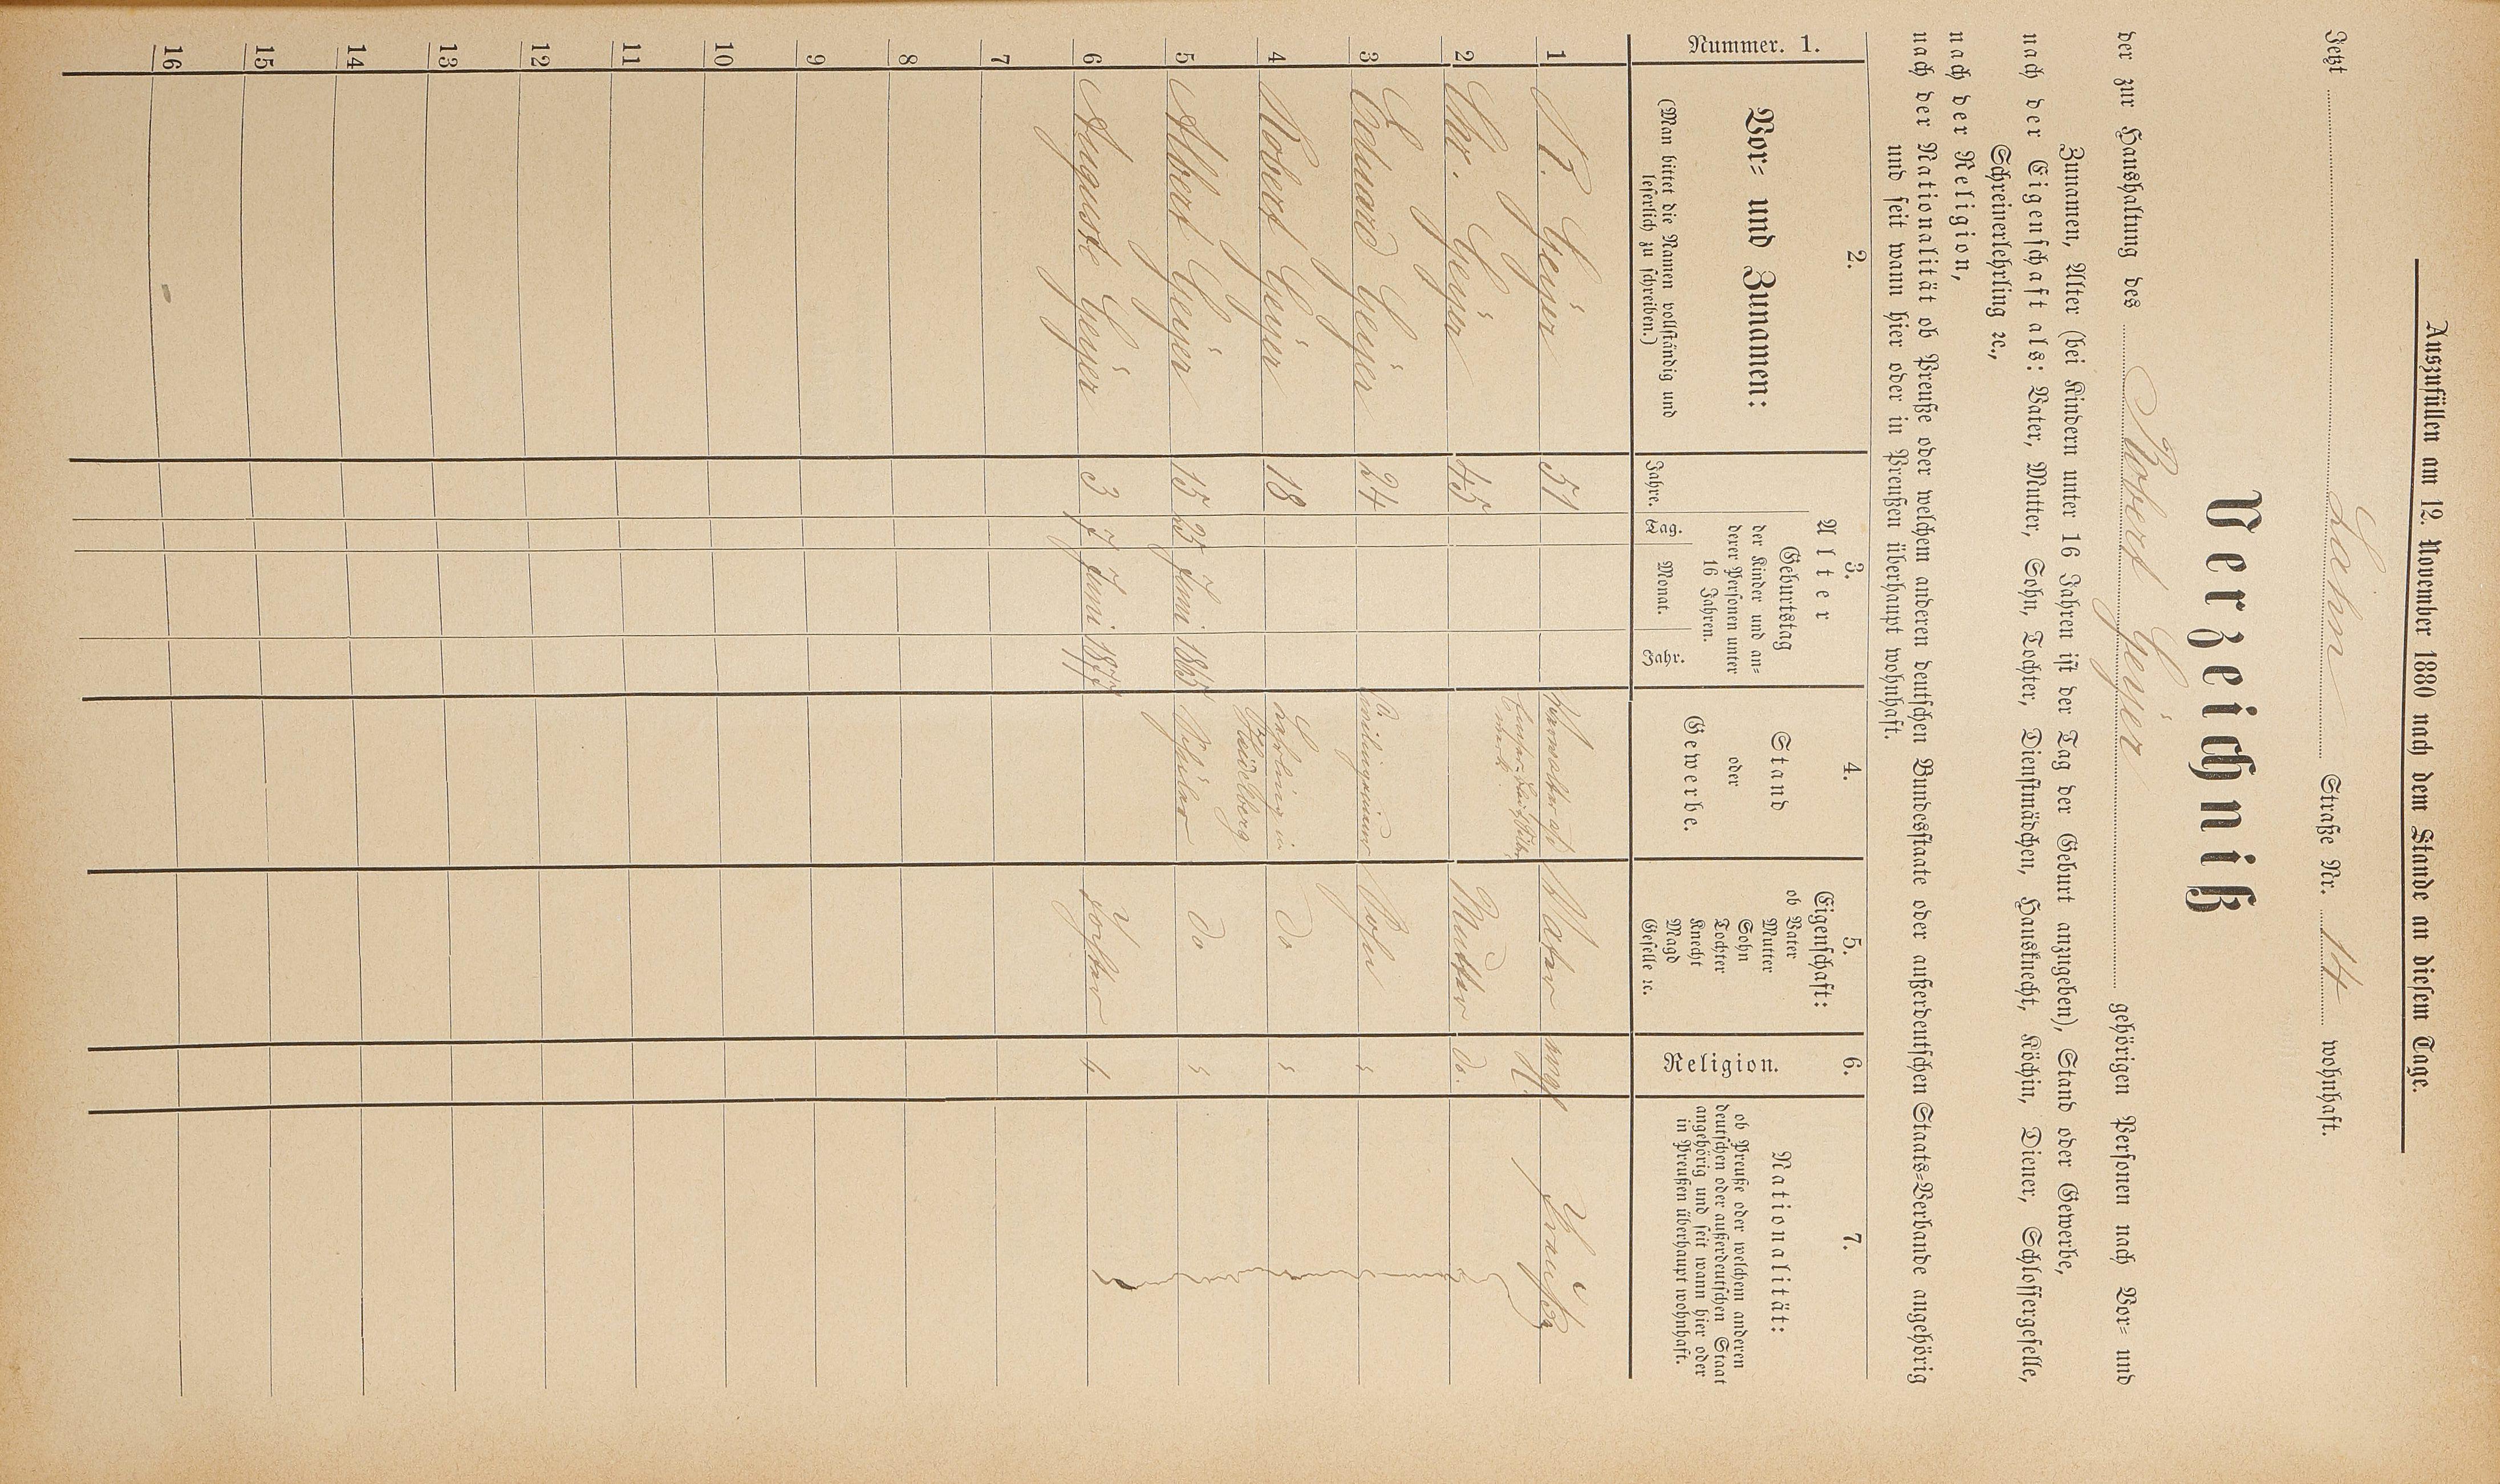 Auszufüllen am 12. November 1880 nach dem Stande an diesem Tage.
Jetzt Lahn Straße Nr. 14 wohnhaft.
Verzeichniß
der zur Haushaltung des Robert Geyer gehörigen Personen nach Vor- und
Zunamen, Alter (bei Kindern unter 16 Jahren ist der Tag der Geburt anzugeben), Stand oder Gewerbe,
nach der Eigenschaft als: Vater, Mutter, Sohn, Tochter, Dienstmädchen, Hausknecht, Köchin, Diener, Schlossergeselle,
Schreinerlehrling ꝛc.,
nach der Religion,
nach der Nationalität ob Preuße oder welchem anderen deutschen Bundesstaate oder außerdeutschen Staats-Verbande angehörig
und seit wann hier oder in Preußen überhaupt wohnhaft.
Nummer. 1.
2.
Vor- und Zunamen:
(Man bittet die Namen vollständig und
leserlich zu schreiben.)
3.
Alter
Jahre.
Geburtstag
der Kinder und an-
derer Personen unter
16 Jahren.
Tag. Monat. Jahr.
4.
Stand
oder
Gewerbe.
5.
Eigenschaft:
ob Vater
Mutter
Sohn
Tochter
Knecht
Magd
Geselle ꝛc.
6.
Religion.
7.
Nationalität:
ob Preuße oder welchem anderen
deutschen oder außerdeutschen Staat
angehörig und seit wann hier oder
in Preußen überhaupt wohnhaft.
1 R. Geyer 51 Vater evgl. Preuße
2 Chr. Geyer 45 Mutter do.
3 Eduard Geyer 24 Sohn "
4 Robert Geyer 18 Lehrling in Heidelberg do "
5 Albert Geyer 15 25 Juni 1865 Schüler do "
6 Auguste Geyer 3 7 Juni 1877 Tochter "
7
8
9
10
11
12
13
14
15
16